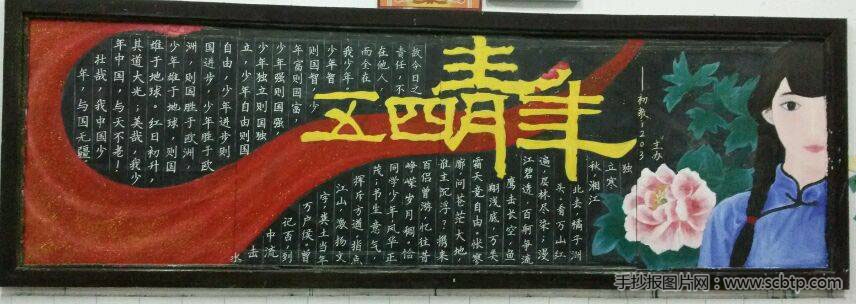 五四青年
——初教·203 主办
故今日之
责任，不
在他人，
而全在
我少年。
少年智
则国智，少
年富则国富，
少年强则国强，
少年独立则国独
立，少年自由则国
自由，少年进步则
国进步，少年胜于欧
洲，则国胜于欧洲，
少年雄于地球，则国
雄于地球。红日初升，
其道大光；美哉，我少
年中国，与天不老！
壮哉，我中国少
年，与国无疆！
独
立寒
秋湘江
北去，橘子洲
头，看万山红
遍，层林尽染；漫
江碧透，百舸争流
鹰击长空，鱼
翔浅底，万类
霜天竞自由，怅寥
廓，问苍茫大地
谁主沉浮？携来
百侣曾游，忆往昔
峥嵘岁月稠，恰
同学少年风华正
茂；书生意气，
挥斥方遒，指点
江山，激扬文
字，粪土当年
万户侯，曾
记否，到
中流
击
水
手抄报图片网：www.scbtp.com